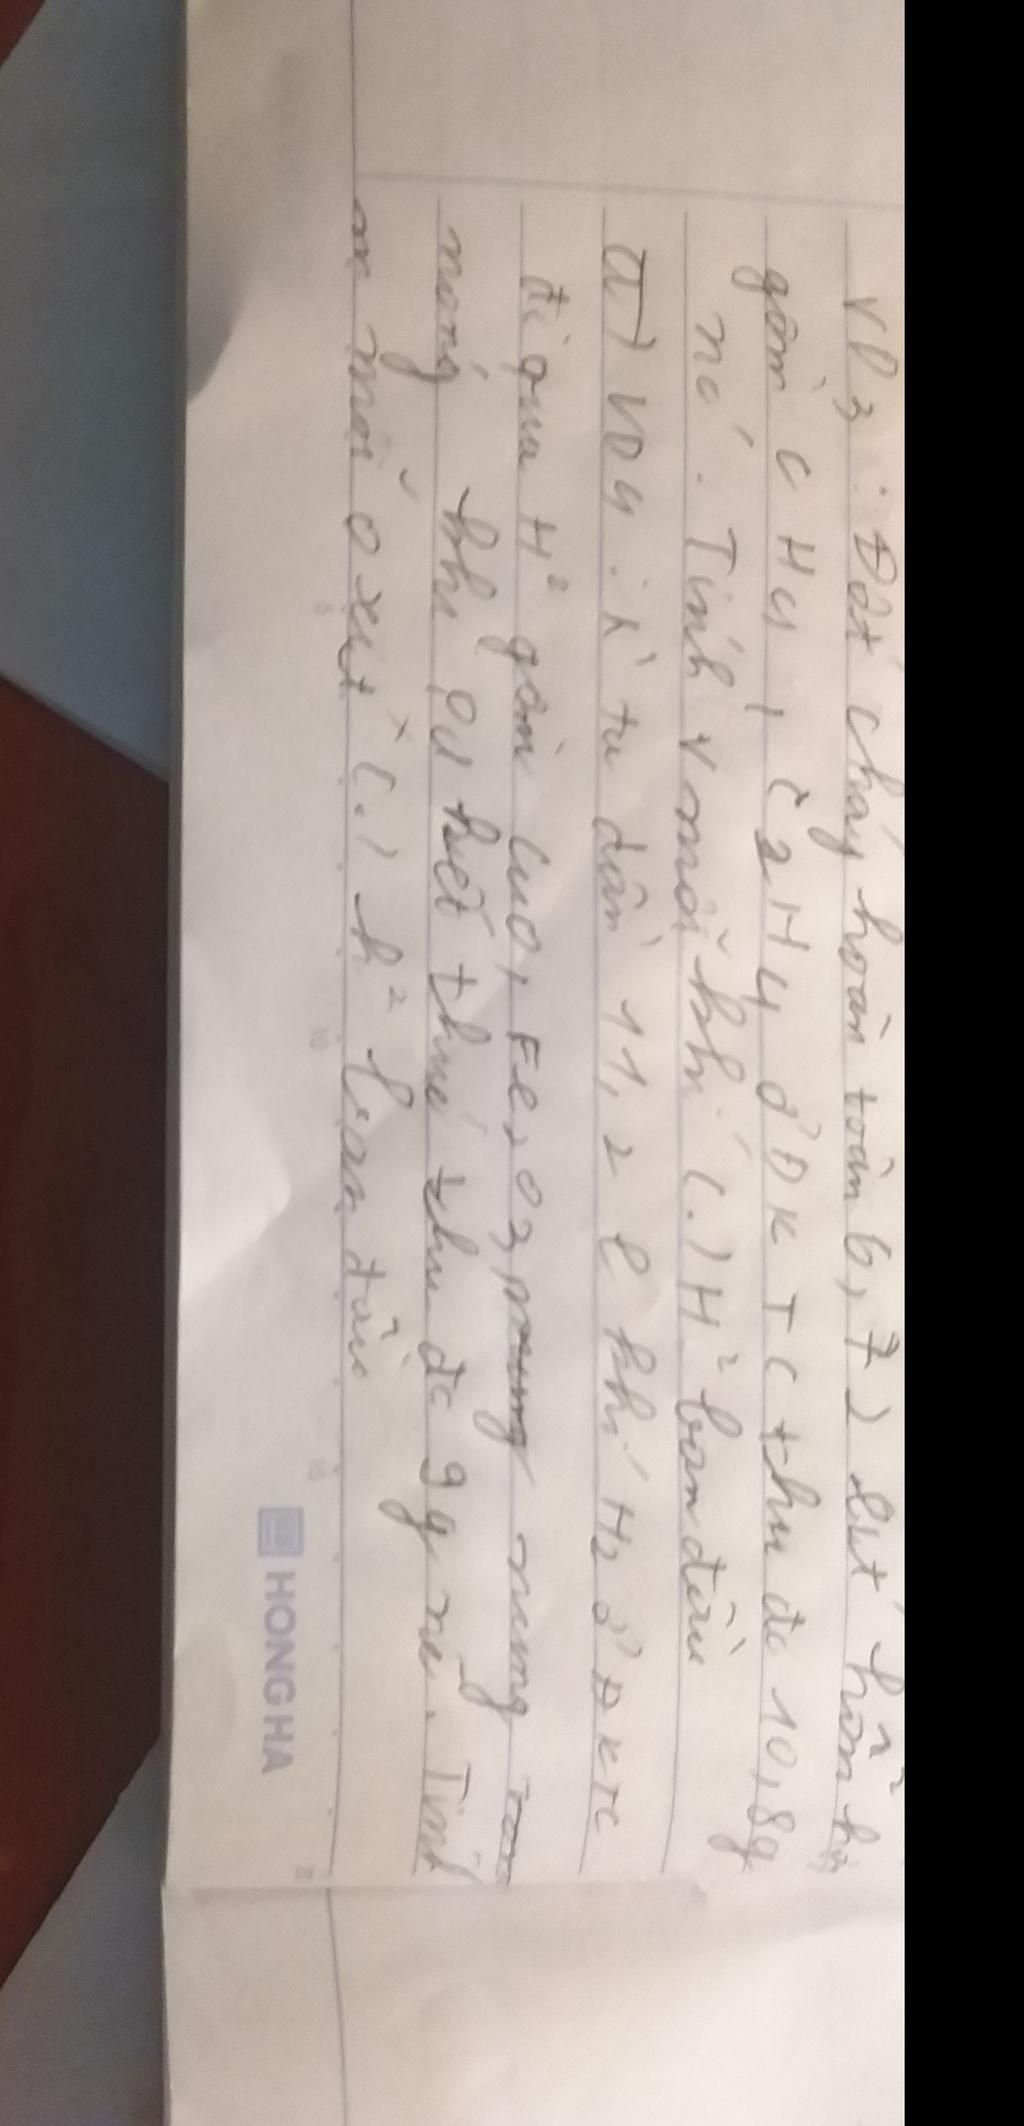 VD3: Đốt cháy hoàn toàn 6,72 lít hỗn hợp
gồm CH4, C2H4 ở ĐKTC thu đc 10,8g
nc. Tính V mỗi khí (.) H² ban đầu
VD4: từ dẫn 11,2 l khí H2 ở ĐKTC
đi qua H² gồm CuO, Fe2O3 nung
nóng khi pứ kết thúc thu đc 9g nc. Tính
m mỗi oxit (.) h² ban đầu
HONG HA
5
10
15